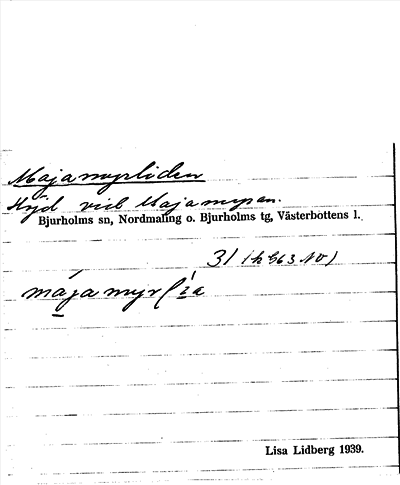 Majamyrliden
Höjd vid Majamyran.
Bjurholms sn, Nordmaling o. Bjurholms tg, Västerbottens l.
31
májamyrlìa
Lisa Lidberg 1939.